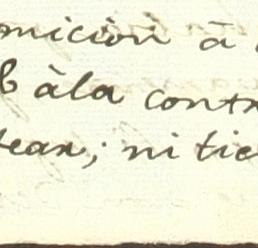 micion á
àla contr
tean; ni tie